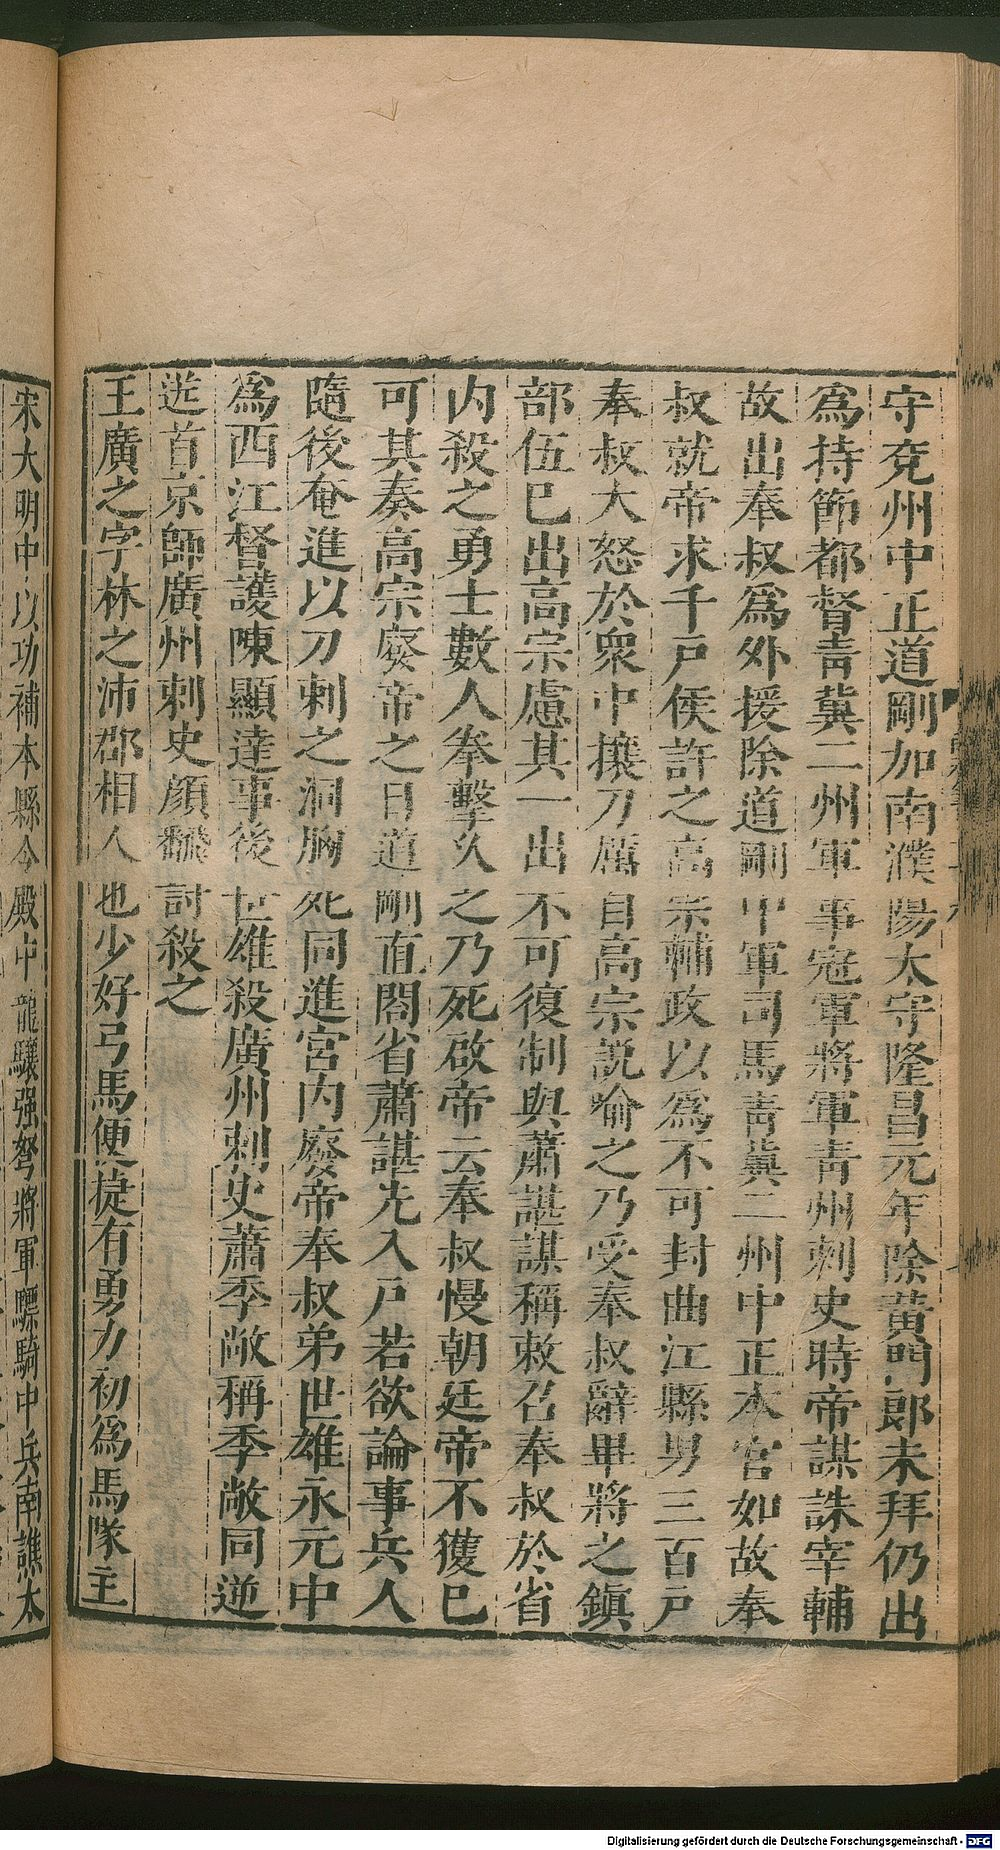 守兗州中正道剛加南濮陽太守隆昌元年除黃門郎未拜仍出
為持節都督青冀二州軍事冠軍將軍青州刺史時帝謀誅宰輔
故出奉叔為外援除道剛中軍司馬青冀二州中正本官如故奉
叔就帝求千戶侯許之高宗輔政以為不可封曲江縣男三百戶
奉叔大怒於衆中攘刀厲自高宗說喻之乃受奉叔辭畢將之鎮
部伍已出高宗慮其一出不可復制與蕭諶謀稱敕召奉叔於省
內殺之勇士數人拳擊久之乃死啟帝云奉叔慢朝廷帝不獲已
可其奏高宗廢帝之日道剛直閤省蕭諶先入戶若欲論事兵人
隨後奄進以刀刺之洞胸死同進宮內廢帝奉叔弟世雄永元中
為西江督護陳顯達事後世雄殺廣州刺史蕭季敞稱季敞同逆
送首京師廣州刺史顏翻討殺之
王廣之字林之沛郡相人也少好弓馬便捷有勇力初為馬隊主
宋大明中以功補本縣令殿中龍驤强弩將軍驃騎中兵南譙太
Digitalisierung gefördert durch die Deutsche Forschungsgemeinschaft - DFG